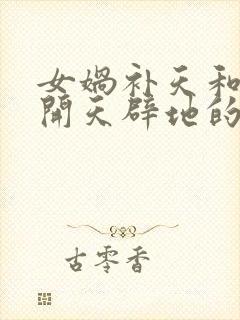 女娲补天和
開天辟地的
古零香